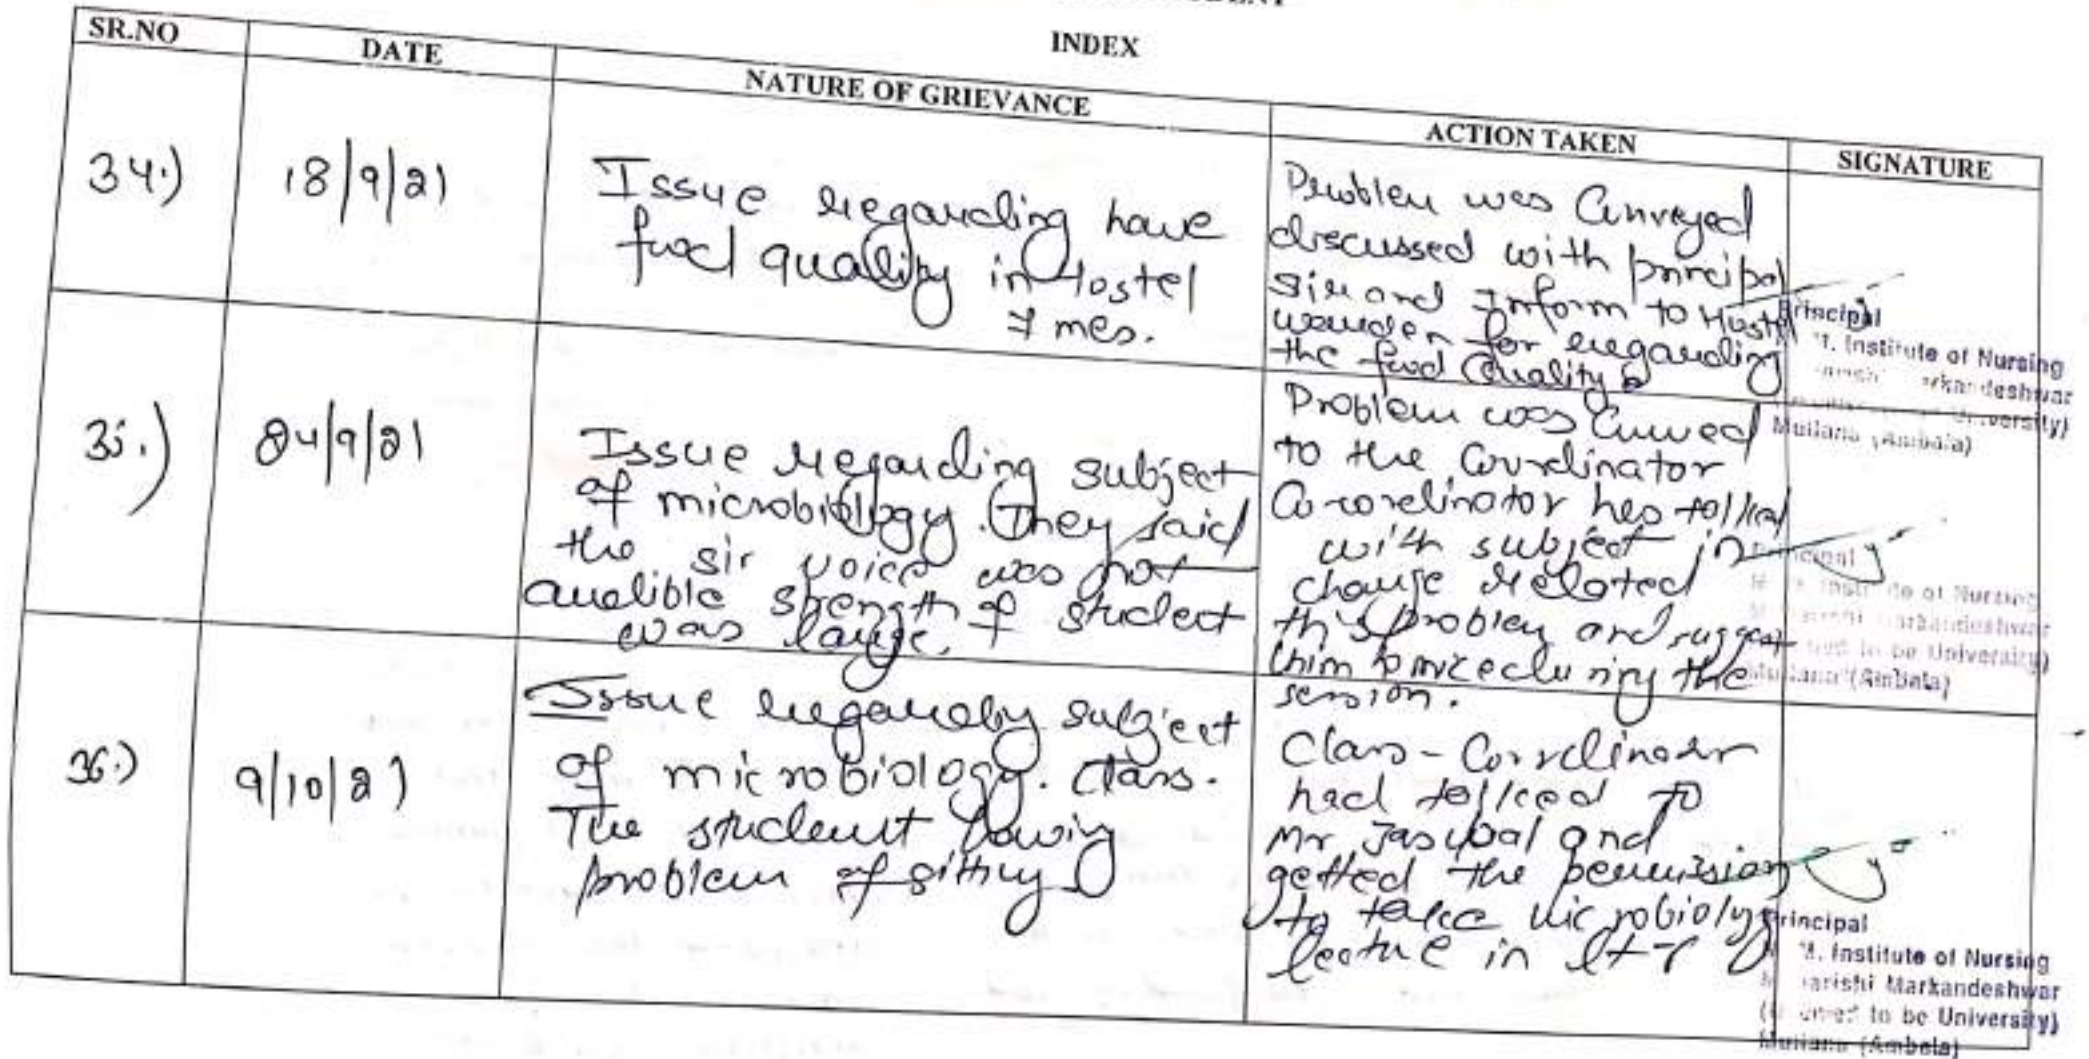 INDEX
SR.NO
DATE
NATURE OF GRIEVANCE
ACTION TAKEN
SIGNATURE
34.)
18/9/21
Issue regarding have
food quality in Hostel
mes.
Problem was Conveyed
discussed with principal
sir and Inform to Hostel
warden for regarding
the food Quality
Principal
Institute of Nursing
Mullana (Ambala)
35.)
24/9/21
Issue regarding subject
of microbiology. They said
the sir voice was not
audible strength of student
was large.
Problem was
to the Coordinator
Co-cordinator has talked
with subject in
charge related
this problem and suggest
him to during the
session.
Principal
Institute of Nursing
Markandeshwar
to be University)
Mullana (Ambala)
36.)
9/10/21
Issue regarding subject
of microbiology. Class.
The student having
problem of sitting
Class-Coordinator
had talked to
Mr Jaswal and
getted the permission
to take microbiology
lecture in lt-7
Principal
M. M. Institute of Nursing
Maharishi Markandeshwar
(Deemed to be University)
Mullana (Ambala)